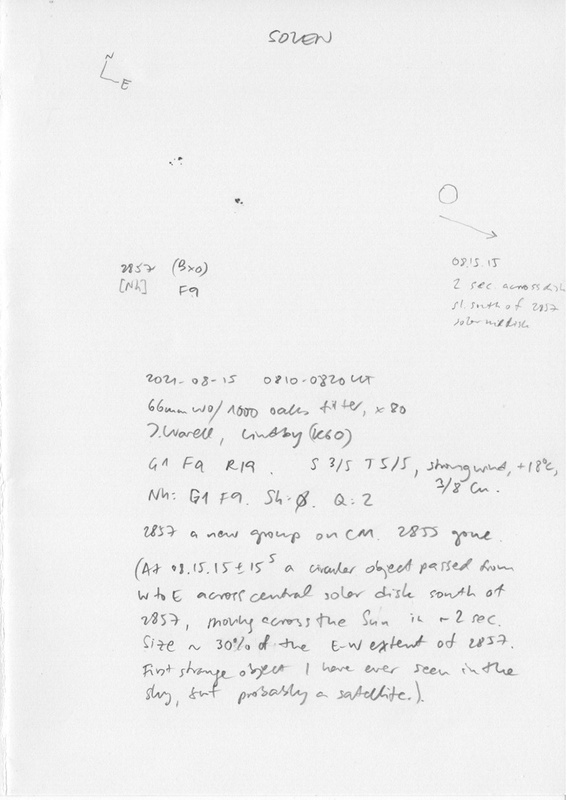 SOLEN
N
E
2857 (Bxo)
[Nh] F9
08.15.15
2 sec. across disk
sl. south of 2857
solar mid disk
2021-08-15 0810-0820 UT
66mm WO/1000 oaks filter, x80
J. Warell, Lindby (K60)
G1 F9 R19. S 3/5 T 5/5, strong wind, +18°C,
3/8 Cu.
Nh: G1 F9. Sh: Ø. Q: 2
2857 a new group on CM. 2855 gone.
(At 08.15.15 ± 15s a circular object passed from
W to E across central solar disk south of
2857, moving across the Sun in ~2 sec.
Size ~ 30% of the E-W extent of 2857.
First strange object I have ever seen in the
sky, but probably a satellite.).